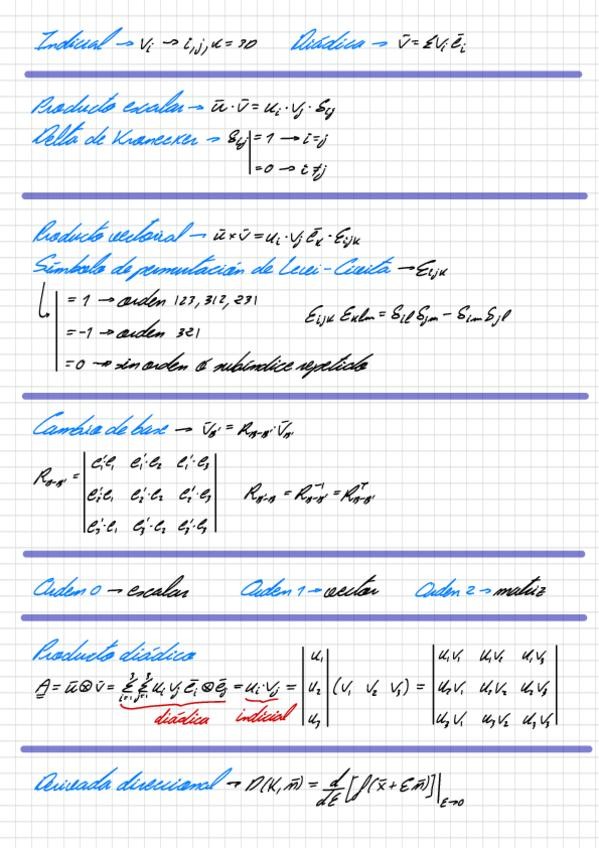 Indicial → Vi → i,j,k = 3D Diádica → v̄ = ΣVi ēi
Producto escalar → ū · v̄ = ui · vj · δij
Delta de Kronecker → δij = 1 → i=j
= 0 → i≠j
Producto vectorial → ū × v̄ = ui · vj ēk · Eijk
Símbolo de permutación de Levi-Civita → Eijk
= 1 → orden 123, 312, 231
Eijk Eklm = δil δjm − δim δjl
= -1 → orden 321
= 0 → sin orden o subíndice repetido
Cambio de base → v̄B' = RB-B' · v̄B'
RB-B' = e1'·e1 e1'·e2 e1'·e3
e2'·e1 e2'·e2 e2'·e3 RB'-B = RB-B'⁻¹ = RB-B'ᵀ
e3'·e1 e3'·e2 e3'·e3
Orden 0 → escalar Orden 1 → vector Orden 2 → matriz
Producto diádico
A = ū ⊗ v̄ = Σ Σ ui vj ēi ⊗ ēj = ui · vj = | u1 u2 u3 | (v1 v2 v3) = | u1v1 u1v2 u1v3
u2v1 u2v2 u2v3
u3v1 u3v2 u3v3 |
diádica indicial
Derivada direccional → D(x̄,n̄) = d/dE [f(x̄ + En̄)]|E→0